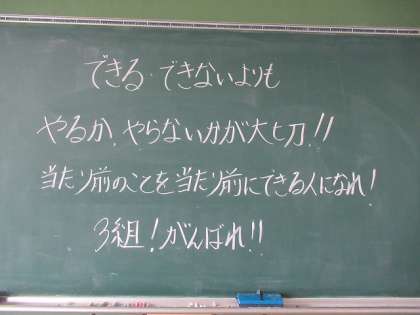 できる・できないよりも
やるか、やらないかが大切!!
当たり前のことを当たり前にできる人になれ!
3組!がんばれ!!